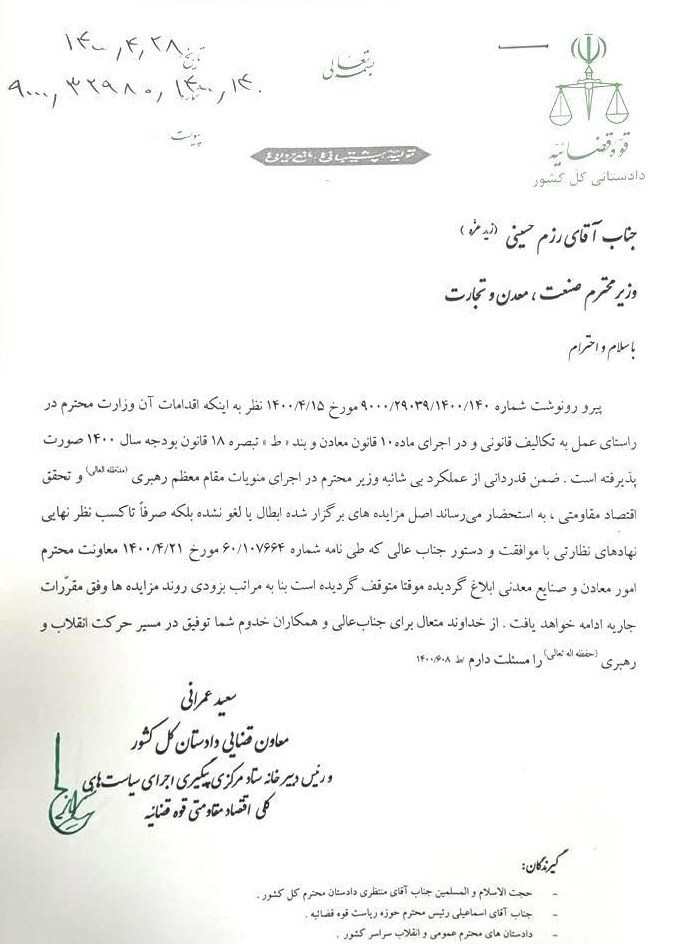 بسمه تعالی
تاریخ ۱۴۰۰،۴،۲۸
۹۰۰۰،۳۲۹۸۰،۱۴۰۰،۱۴۰
پیوست:
قوه قضائیه
دادستانی کل کشور
تولید، پشتیبانی ، مانع زدایی
جناب آقای رزم حسینی (زید عزه)
وزیر محترم صنعت ، معدن و تجارت
با سلام و احترام
پیرو رونوشت شماره ۹۰۰۰/۲۹۰۳۹/۱۴۰۰/۱۴۰ مورخ ۱۴۰۰/۴/۱۵ نظر به اینکه اقدامات آن وزارت محترم در
راستای عمل به تکالیف قانونی و در اجرای ماده۱۰ قانون معادن و بند « ط » تبصره ۱۸ قانون بودجه سال ۱۴۰۰ صورت
پذیرفته است . ضمن قدردانی از عملکرد بی شائبه وزیر محترم در اجرای منویات مقام معظم رهبری (مدظله العالی) و تحقق
اقتصاد مقاومتی ، به استحضار می‌رساند اصل مزایده های برگزار شده ابطال یا لغو نشده بلکه صرفاً تاکسب نظر نهایی
نهادهای نظارتی با موافقت و دستور جناب عالی که طی نامه شماره ۶۰/۱۰۷۶۶۴ مورخ ۱۴۰۰/۴/۲۱ معاونت محترم
امور معادن و صنایع معدنی ابلاغ گردیده موقتا متوقف گردیده است بنا به مراتب بزودی روند مزایده ها وفق مقرّرات
جاریه ادامه خواهد یافت . از خداوند متعال برای جناب‌عالی و همکاران خدوم شما توفیق در مسیر حرکت انقلاب و
رهبری (حفظه اله تعالی) را مسئلت دارم /ط ۱۴۰۰/۶۰۸
سعید عمرانی
معاون قضایی دادستان کل کشور
و رئیس دبیرخانه ستاد مرکزی پیگیری اجرای سیاست‌های
کلی اقتصاد مقاومتی قوه قضائیه
گیرندگان:
- حجت الاسلام و المسلمین جناب آقای منتظری دادستان محترم کل کشور .
- جناب آقای اسماعیلی رئیس محترم حوزه ریاست قوه قضائیه .
- دادستان های محترم عمومی و انقلاب سراسر کشور .